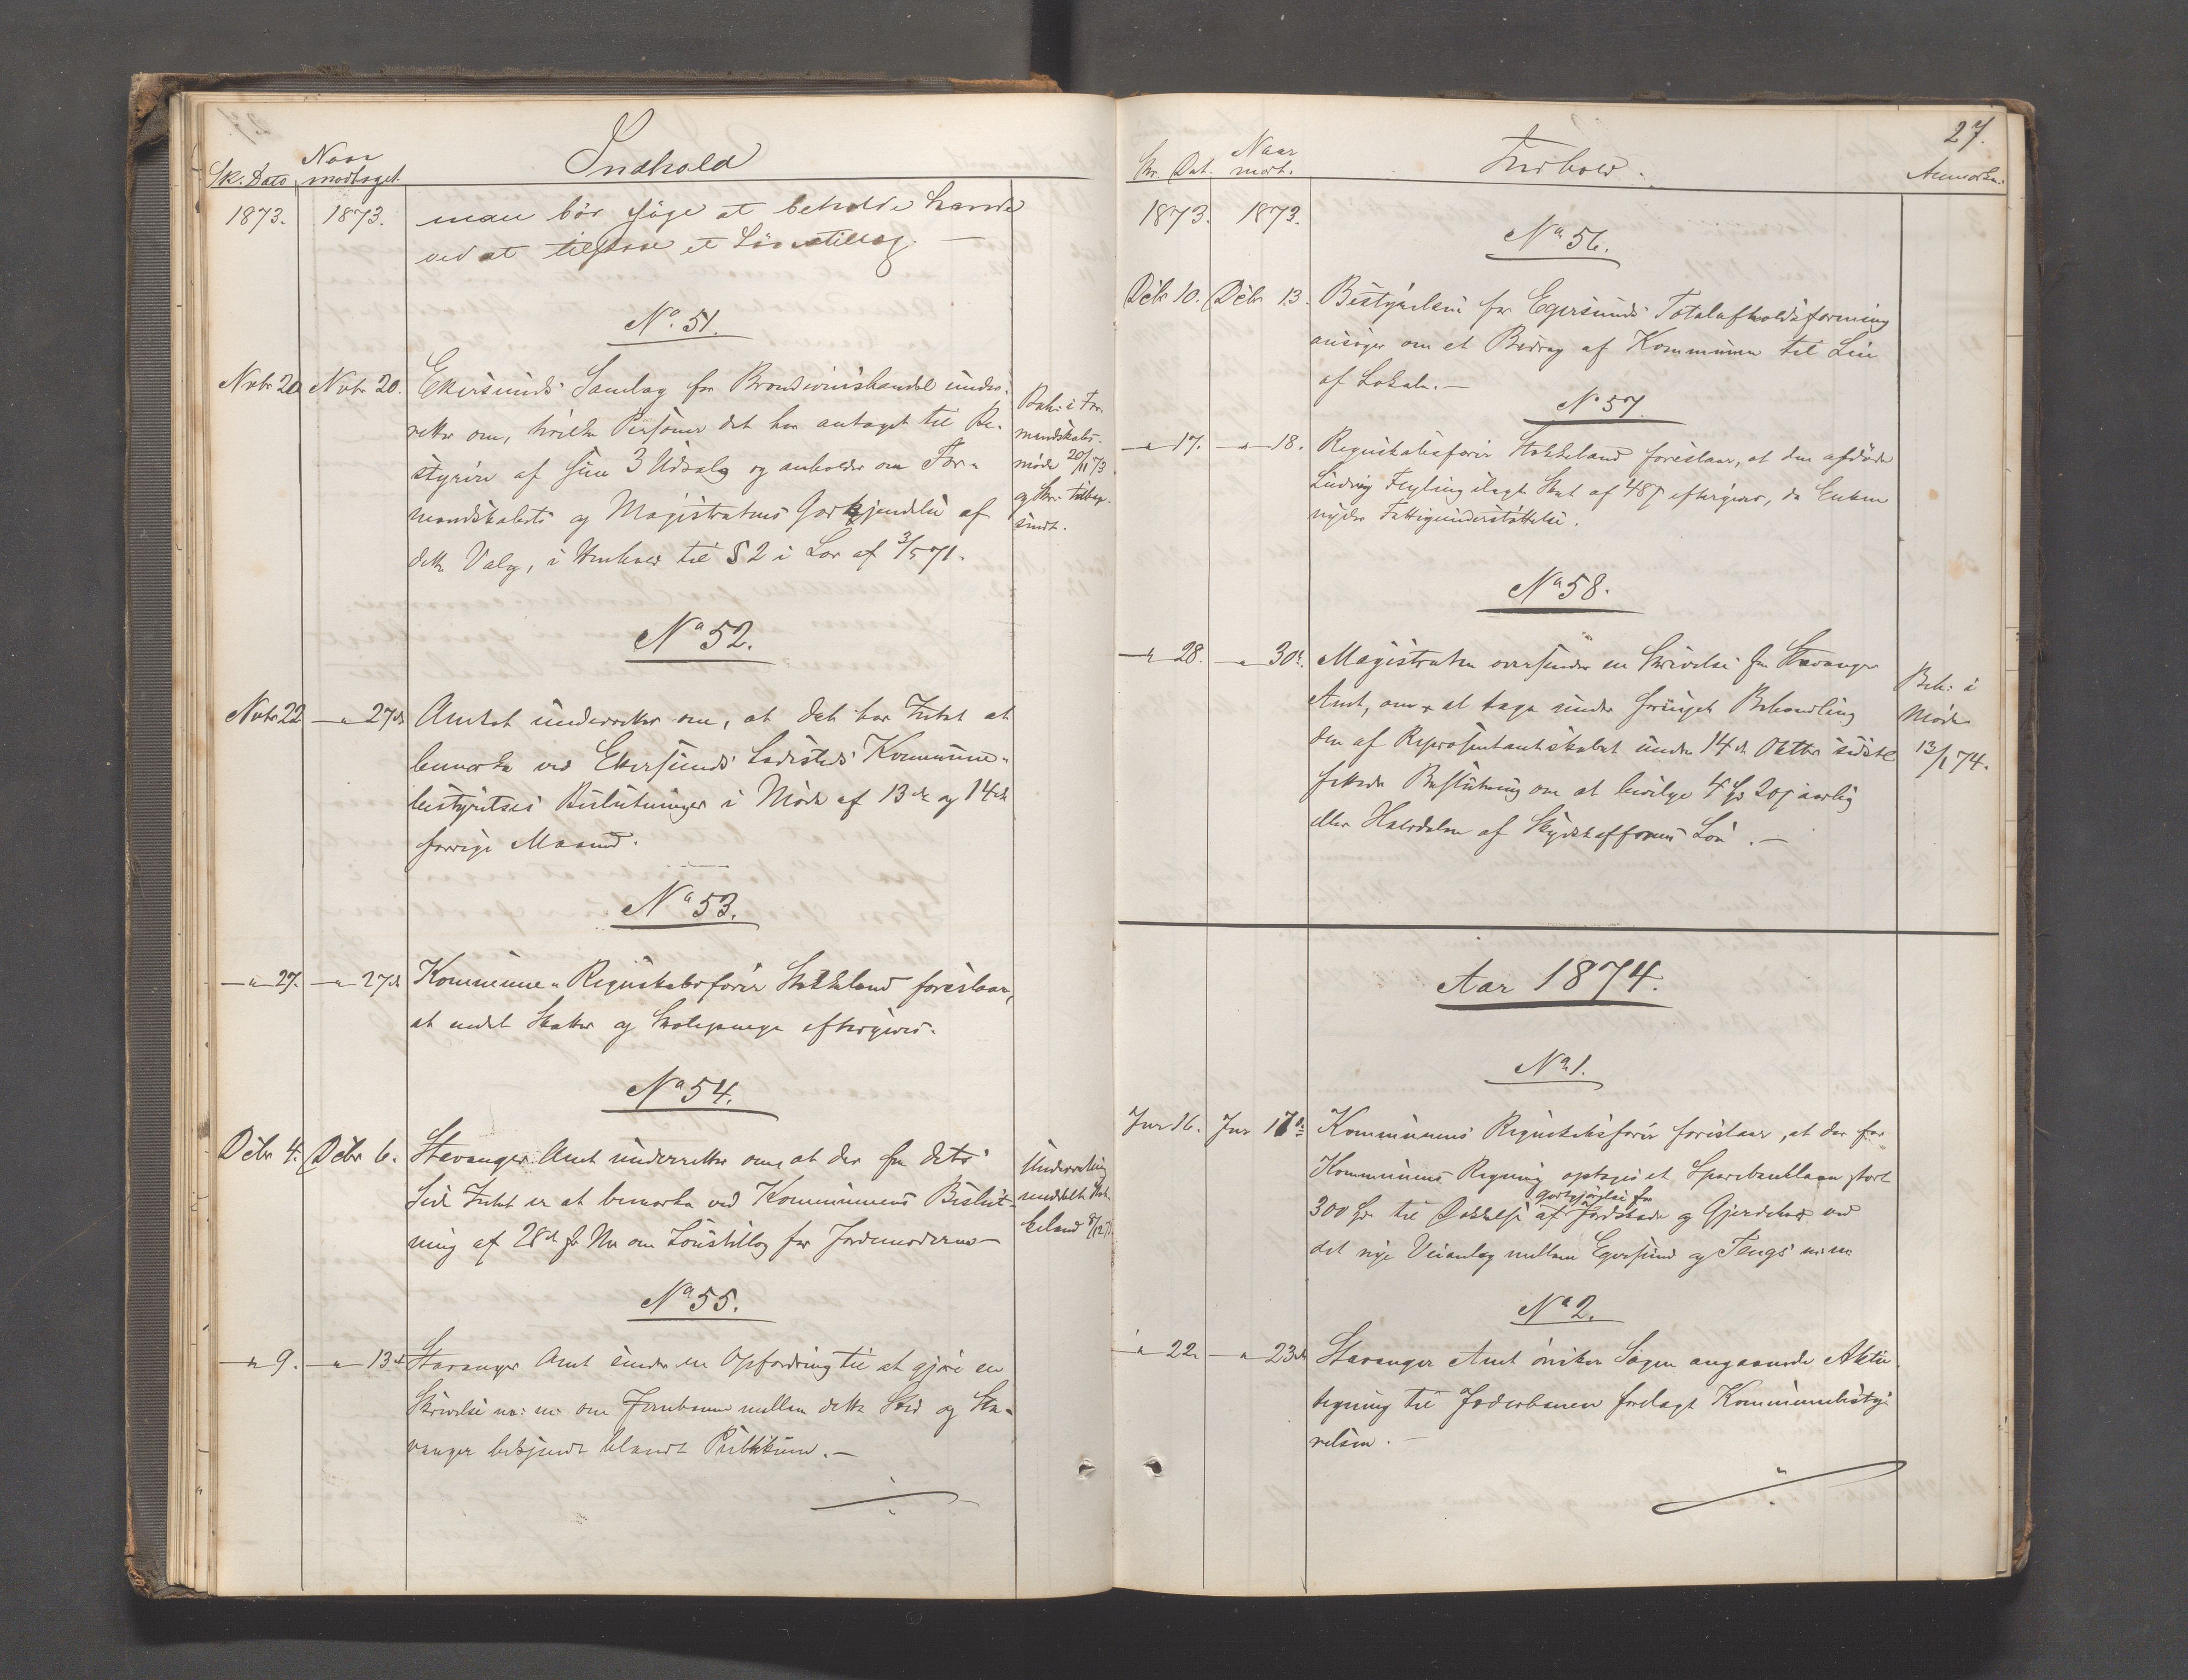 Sk. Dato Naar modtaget. Indhold
1873. 1873. man bör söge at beholde hende
ved at tilstaae et Löntillæg. —
No. 51.
Nvbr 20 Nvbr 20. Ekersunds Samlag for Brændevinshandel under-
retter om, hvilke Personer det har antaget til Be-
styrere af sine 3 Udsalg og anholder om For-
mandskabets og Magistratens Godkjendelse af
dette Valg, i Henhold til § 2 i Lov af 3/5 71.
Beh. i For-
mandskabs-
möde 20/11 73
og Skr. tilbage-
sendt.
No 52.
Nvbr 22 —"— 27de Amtet underretter om, at det har Intet at
bemærke ved Ekersunds Ladesteds Kommune-
bestyrelses Beslutninger i Möde af 13de og 14de
forrige Maaned.
No 53.
—"— 27. —"— 27de Kommune-Regnskabsförer Stokkeland foreslaar,
at endel Skatter og Skolepenge eftergives.
No 54.
Debr 4. Debr 6. Stavanger Amt underretter om, at der fra dets
Side Intet er at bemærke ved Kommunens Beslut-
ning af 28de f. M. om Lönstillæg for Jordemoderen —
Underretning
meddelt Stok-
keland 8/12 73.
No 55.
—"— 9. —"— 13de Stavanger Amt sender en Opfordring til at gjöre en
Skrivelse m: m: om Jernbane mellem dette Sted og Sta-
vanger bekjendt blandt Publikum. —
27.
Skr. Dat. Naar modt. Indhold. Anmærkn.
1873. 1873.
No 56.
Debr 10. Debr 13. Bestyrelsen for Egersunds Totalafholdsforening
ansöger om et Bidrag af Kommunen til Leie
af Lokale. —
No 57.
—"— 17. —"— 18. Regnskabsförer Stokkeland foreslaar, at den afdöde
Ludvig Feyling ilagt Skat af 48 β eftergives, da Enken
nyder Fattigunderstöttelse.
No 58.
—"— 28. —"— 30. Magistraten oversender en Skrivelse fra Stavanger
Amt, om at tage under fornyet Behandling
den af Repræsentantskabet under 14de Oktbr sidstl
fattede Beslutning om at bevilge 4 Spd 20 β aarlig
eller Halvdelen af Skydsskafferens Lön. —
Beh. i
Möde
13/1 74.
Aar 1874.
No 1.
Jnr 16. Jnr 17de Kommunens Regnskabsförer foreslaar, at der for
Kommunens Regning optages et Sparebanklaan stort
300 Spd til Dækkelse af godtgjörelse for Jordskade og Gjerdehold ved
det nye Veianlæg mellem Egersund og Tengs m: m:
No 2.
—"— 22. —"— 23de Stavanger Amt önsker Sagen angaaende Aktie-
tegning til Jæderbanen forelagt Kommunebesty-
relsen. —